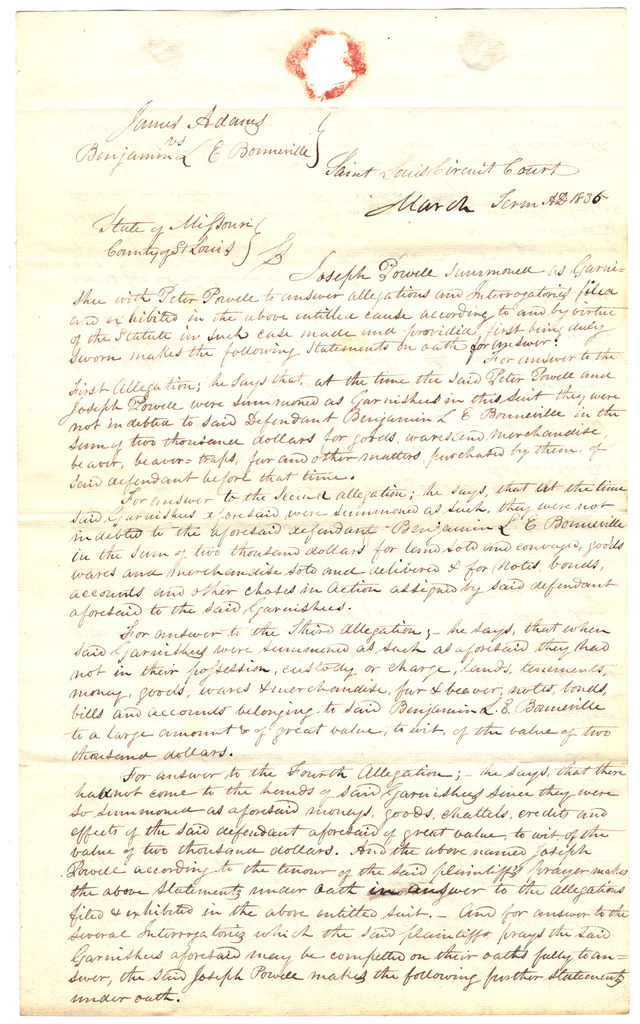 James Adams
vs
Benjamin L E Bonneville
Saint Louis Circuit Court
March Term AD 1836
State of Missouri
County of St Louis } ss
Joseph Powell summoned as Garni-
shee with Peter Powell to answer allegations and Interrogatories filed
and exhibited in the above entitled cause according to and by virtue
of the Statute in such case made and provided, first being duly
sworn makes the following statements on oath for answer.
For answer to the
First Allegation; he says that, at the time the said Peter Powell and
Joseph Powell were summoned as Garnishees in this suit they were
not indebted to said Defendant Benjamin L E Bonneville in the
sum of two thousand dollars for goods, wares and merchandise,
beaver, beaver-traps, fur and other matters purchased by them of
said defendant before that time.
For answer to the Second allegation; he says, that at the time
said Garnishees aforesaid were summoned as such, they were not
indebted to the aforesaid defendant Benjamin L E Bonneville
in the sum of two thousand dollars for land sold and conveyed, goods
wares and merchandise sold and delivered & for notes, bonds,
accounts and other choses in Action assigned by said defendant
aforesaid to the said Garnishees.
For answer to the Third allegation; - he says, that when
said Garnishees were summoned as such as aforesaid they had
not in their possession, custody or charge, lands, tenements,
money, goods, wares & merchandise, fur & beaver, notes, bonds,
bills and accounts belonging to said Benjamin L. E. Bonneville
to a large amount & of great value, to wit, of the value of two
thousand dollars.
For answer to the Fourth Allegation; - he says, that there
had not come to the hands of said Garnishees since they were
so summoned as aforesaid moneys, goods, chattels, credits and
effects of the said defendant aforesaid of great value, to wit of the
value of two thousand dollars. And the above named Joseph
Powell according to the tenour of the said plaintiffs prayer makes
the above statements under oath in answer to the allegations
filed & exhibited in the above entitled suit. - And for answer to the
several Interrogatories which the said plaintiff prays the said
Garnishees aforesaid may be compelled on their oaths fully to an-
swer, the said Joseph Powell makes the following further statements
under oath.